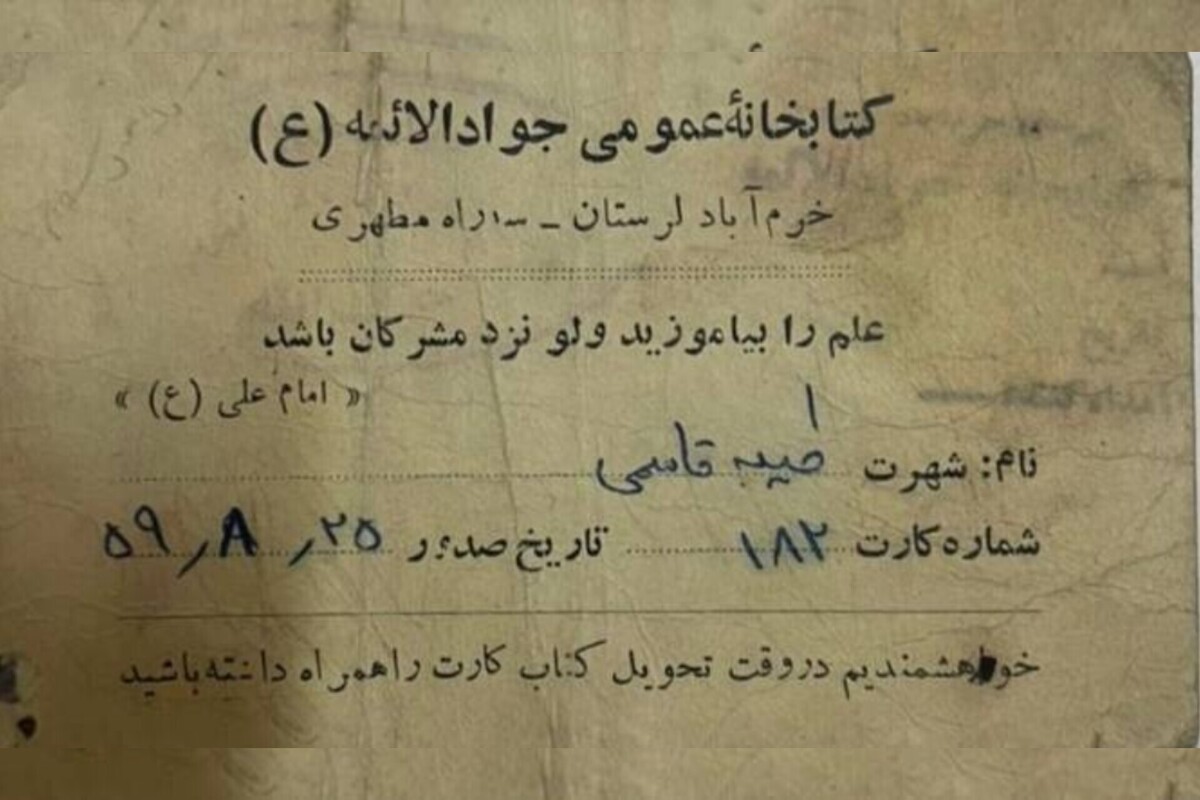 کتابخانهٔ عمومی جوادالائمه (ع)
خرم‌آباد لرستان ـ سه‌راه مطهری
علم را بیاموزید ولو نزد مشرکان باشد
« امام علی (ع) »
نام: شهرت قاسمی
شماره کارت ۱۸۲ تاریخ صدور ۲۵ ر ۸ ر ۵۹
خواهشمندیم در وقت تحویل کتاب کارت را همراه داشته باشید